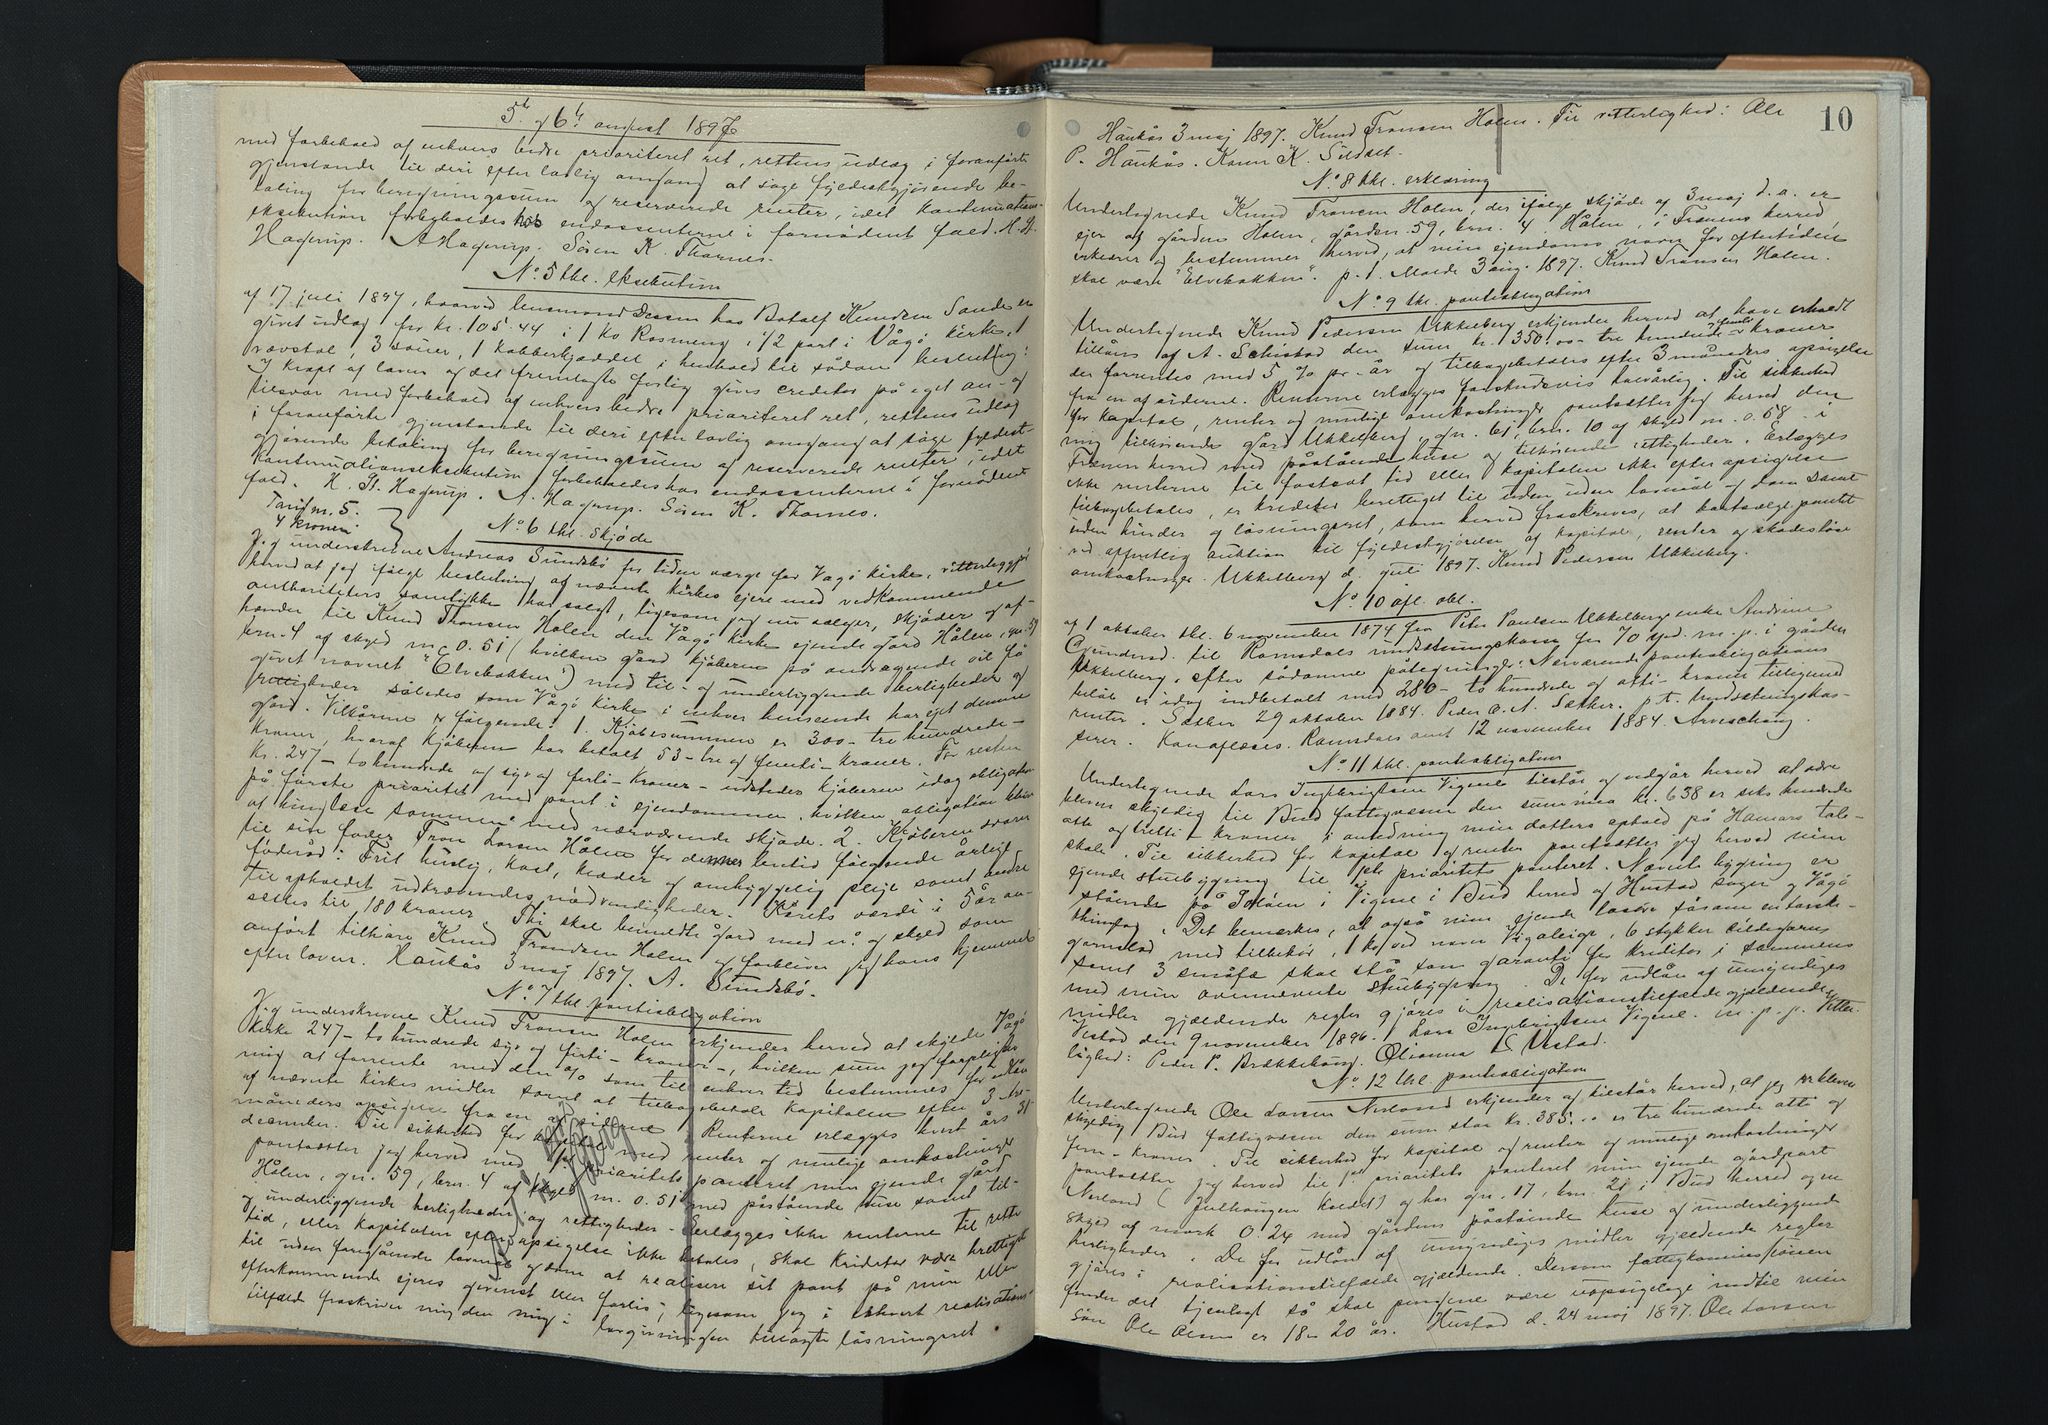 5te og 6te august 1897
med forbehold af enhvers bedre prioriteret ret, rettens udlæg i foranførte
gjenstande til deri efter lovlig omgang at søge fyldestgjørende be-
taling for beregningssum og reserverede renter, idet kontinuations-
eksekution forbeholdes hos endossenterne i fornødent fald. H. St.
Hagerup. A Hagerup. Søren K. Thornes.
No. 5 thl. eksekution
af 17 juli 1897, hvorved lensmand Dessen hos Botolf Knudsen Sande er
givet udlæg for kr. 105.44 i 1 ko Rosmeng, 1/2 part i Vågø kirke, 1
vævstol, 3 sauer, 1 kobberkjeddel i henhold til sådan beslutning:
I kraft af loven og det fremlagte forlig gives creditor på eget an- og
tilsvar med forbehold af enhvers bedre prioriteret ret, rettens udlæg
i foranførte gjenstande til deri efter lovlig omgang at søge fyldest-
gjørende betaling for beregningssum og reserverede renter, idet
kontinuationseksekution forbeholdes hos endossenterne i fornødent
fald. H. St. Hagerup. A. Hagerup. Søren K. Thornes.
Tarif m. 5.
4 kroner
No. 6 thl. skjøde
Jeg underskrevne Andreas Sundsbø for tiden værge for Vågø kirke, vitterliggjør
herved at jeg ifølge beslutning af nævnte kirkes ejere med vedkommende
authoriteters samtykke har solgt, ligesom jeg nu sælger, skjøder og af-
hænder til Knud Thronsen Holen den Vågø kirke ejende gård Hålen, gn. 59
brn. 4 af skyld m. 0.51 (hvilken gård kjøberen på andragende vil få
givet navnet "Elvebakken") med til- og underliggende herligheder og
rettigheder således som Vågø kirke i enhver henseende har ejet denne
gård. Vilkårene er følgende: 1. Kjøbesummen er 300 - tre hundrede -
kroner, hvoraf kjøberen har betalt 53 - tre og femti - kroner. For resten
kr. 247 - tohundrede og syv og førti - kroner - udsteder kjøberen idag obligation
på første prioritet med pant i ejendommen, hvilken obligation bliver
at tinglæse sammen med nærværende skjøde. 2. Kjøberen svarer
til sin fader Tron Larsen Hålen for dennes levetid følgende årlige
føderåd: Frit huslig, kost, klæder og omhyggelig pleje samt andre
til opholdet udkrævendes nødvendigheder. Kårets værdi i 5 år an-
sættes til 180 kroner. Thi skal bemeldte gård med n° og skyld som
anført tilhøre Knud Trondsen Holen og forbliver jeg hans hjemmel
efter loven. Haukås 3 maj 1897. A. Sundsbø.
No. 7 thl. pantobligation
Jeg underskrevne Knud Tronsen Holen erkjender herved at skylde Vågø
kirke 247 - tohundrede syv og førti - kroner -, hvilken sum jeg forpligter
mig at forrente med den % som til enhver tid bestemmes for udlån
af nævnte kirkes midler samt at tilbagebetale kapitalen efter 3 tre
måneders opsigelse fra en af siderne. Renterne erlægges hvert års 31
december. Til sikkerhed for kapitalen med renter og mulige omkostninger
pantsætter jeg herved med 1ste prioritets panteret min ejende gård
Hålen, gn. 59, brn. 4 af skyld m. 0.51 med påstående huse samt til-
og underliggende herligheder og rettigheder - Erlægges ikke renterne til rette
tid, eller kapitalen efter opsigelse ikke betales, skal kreditor være berettiget
til uden foregående lovmål og dom at realisere sit pant på min eller
efterkommende ejeres gevinst eller forlis; ligesom jeg i ethvert realisations-
tilfælde fraskriver mig den mig i lovgivningen tillagte løsningsret

10
Haukås 3 maj 1897. Knud Tronsen Holen. Til vitterlighed: Ole
P. Haukås. Karen K. Sildset.
No. 8 thl. erklæring
Undertegnede Knud Tronsen Holen, der ifølge skjøde af 3 maj d. a. er
ejer af gården Holen, gården. 59, brn. 4 Hålen, i Frænens herred,
erklærer og bestemmer herved, at min ejendoms navn for eftertiden
skal være "Elvebakken". p.t. Molde 3 aug. 1897. Knud Tronsen Holen.
No. 9 thl. pantobligation
Undertegnede Knud Pedersen Ukkelberg erkjender herved at have erholdt
tillåns af A. Schistad den sum kr. 350.00 - tre hundrede og femti - kroner
der forrentes med 5 % pr. år og tilbagebetales efter 3 måneders opsigelse
fra en af siderne. Renterne erlægges forskudsvis halvårlig. Til sikkerhed
for kapital, renter og mulige omkostninger pantsætter jeg herved den
mig tilhørende gård Ukkelberg, gn. 61, brn. 10 af skyld m. 0.58 i
Frænen herred med påstående huse og tilhørende rettigheder. Erlægges
ikke renterne til fastsat tid eller kapitalen ikke efter opsigelse
tilbagebetales, er kreditor berettiget til uden uden lovmål og dom samt
uden hinder og løsningsret, som herved fraskrives, at bortsælge pantet
ved offentlig auktion til fyldestgjørelse af kapital, renter og skadesløse
omkostninger. Ukkelberg d. juli 1897. Knud Pedersen Ukkelberg.
No. 10 afl. obl.
af 1 oktober thl. 6 november 1874 fra Peter Paulsen Ukkelbergs enke Andrine
Gundersd. til Romsdals indskudningskasse for 70 spd. m.p. i gården
Ukkelberg, efter sådanne påtegninger: Nærværende pantobligations
beløb er idag indbetalt med 280 - to hundrede og otti - kroner tilligemed
renter. Sæther 29 oktober 1884. Peder O. A. Sæther. p.t. kasse-
serer. Kan aflæses. Romsdals amt 12 november 1884. Arveschoug.
No. 11 thl. pantobligation
Undertegnede Lars Ingebrigtsen Vigene tilstår og vedgår herved at være
bleven skyldig til Bud fattigvæsen den summa kr. 638 er seks hundrede
otte og tretti - kroner i anledning min datters ophold på Hamars tale-
skole. Til sikkerhed for kapital og renter pantsætter jeg herved min
ejende stuebygning til 1ste prioritets panteret. Nævnte bygning er
stående på Toløen i Vigene i Bud herred af Hustad sogn og Vågø
thinglag. Det bemærkes, at også min ejende løsøre såsom en torske-
garnslod med tilbehør, 1 ko ved navn Vigaleige, 6 stykker sildegarns
samt 3 småfæ skal stå som garanti for kreditor i sammens
med min ovennævnte stuebygning. De for udlån af umyndiges
midler gjældende regler gjøres i realisationstilfælde gjældende.
Vestad den 9 november 1896. Lars Ingebrigtsen Vigene. m. p. p. Vitter-
lighed: Peder P. Brækkebøug. Olianna L. Vestad.
No. 12 thl. pantobligation
Undertegnede Ole Larsen Nerland erkjender og tilstår herved, at jeg er bleven
skyldig Bud fattigvæsen den sum stor kr. 385.00 er tre hundrede otti og
fem - kroner. Til sikkerhed for kapital og renter og mulige omkostninger
pantsætter jeg herved til 1ste prioritets panteret min ejende gårdpart
Nerland (Julhougen kaldet) og har gn. 17, brn. 21 i Bud herred og en
skyld af mark 0.24 med gårdens påstående huse og underliggende
herligheder. De for udlån af umyndiges midler gjældende regler
gjøres i realisationstilfælde gjældende. Dersom fattigkommissionen
finder det tjenligt så skal pengene være uopsigelige indtil min
søn Ole Olsen er 18 a 20 år. Hustad d. 24 maj 1897. Ole Larsen